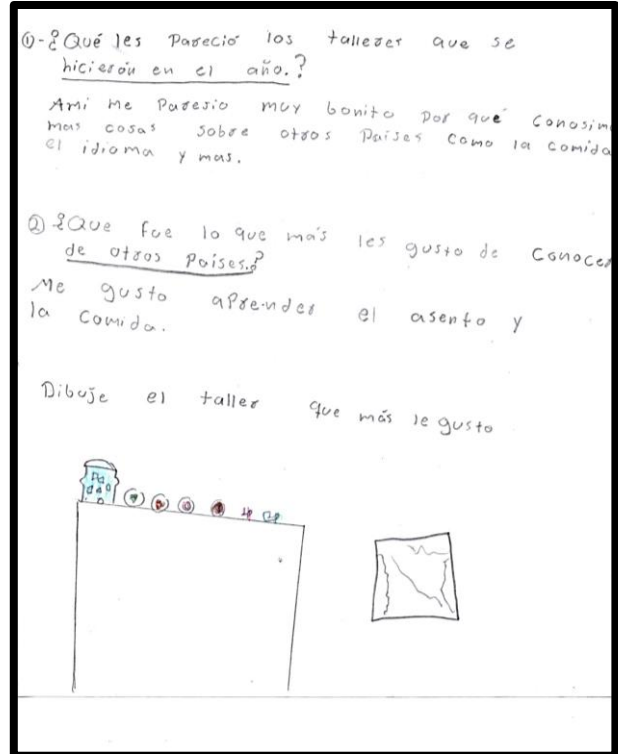 ①-¿Qué les Pareció los talleres que se
hicierón en el año.?
Ami me Paresio muy bonito Por qué conosim
mas cosas sobre otros Paises como la comida
el idioma y mas.
② ¿Que fue lo que más les gusto de conocer
de otros Paises.?
Me gusto aprender el asento y
la comida.
Dibuje el taller que más le gusto